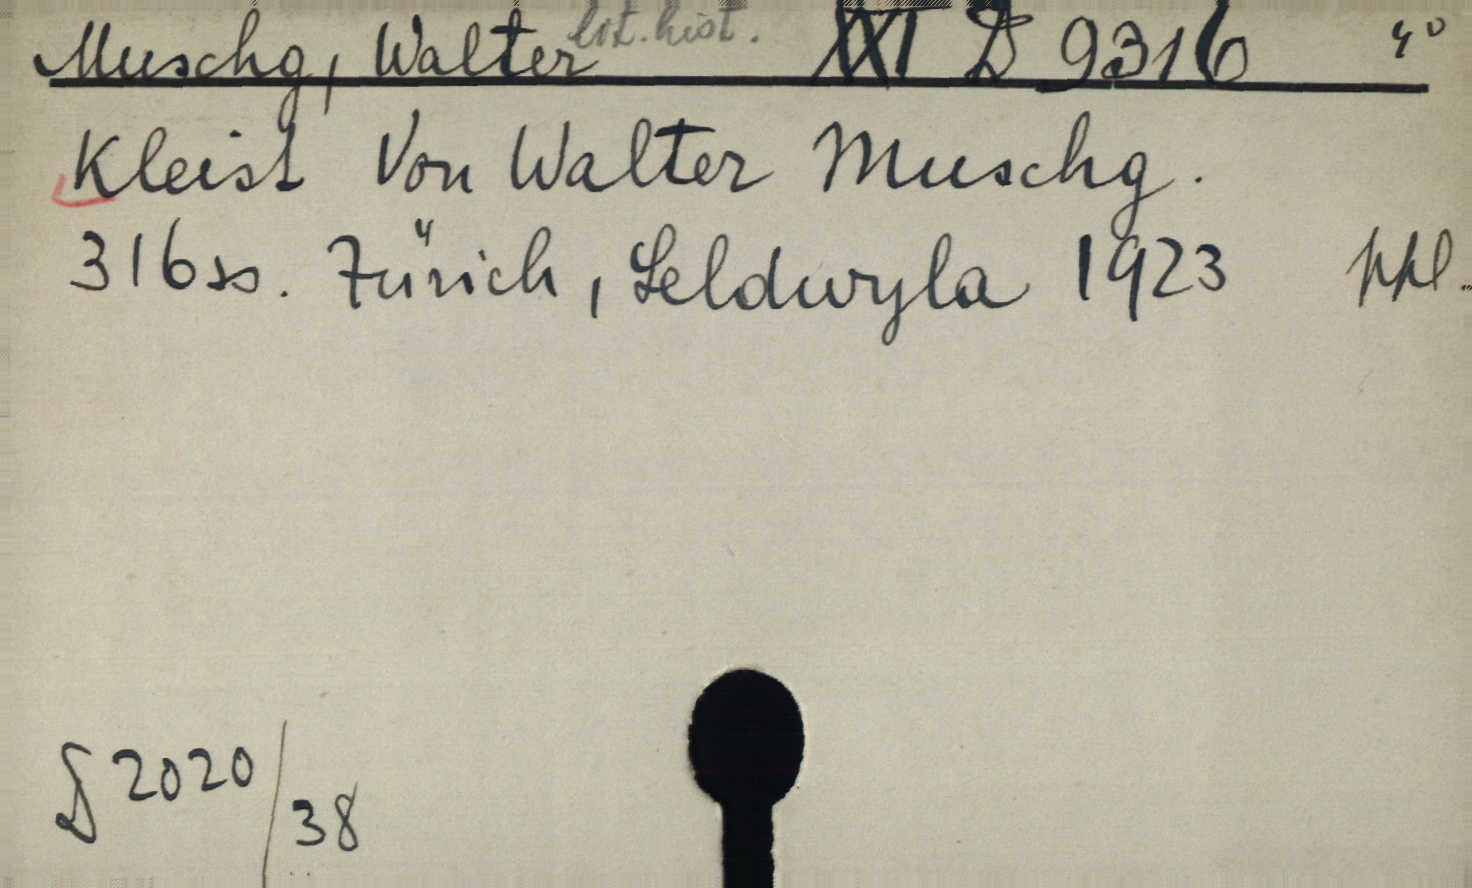 Muschg, Walter lit. hist. XXI D 9316 4°
Kleist Von Walter Muschg.
316 ss. Zürich, Seldwyla 1923 ppl.
D 2020/38